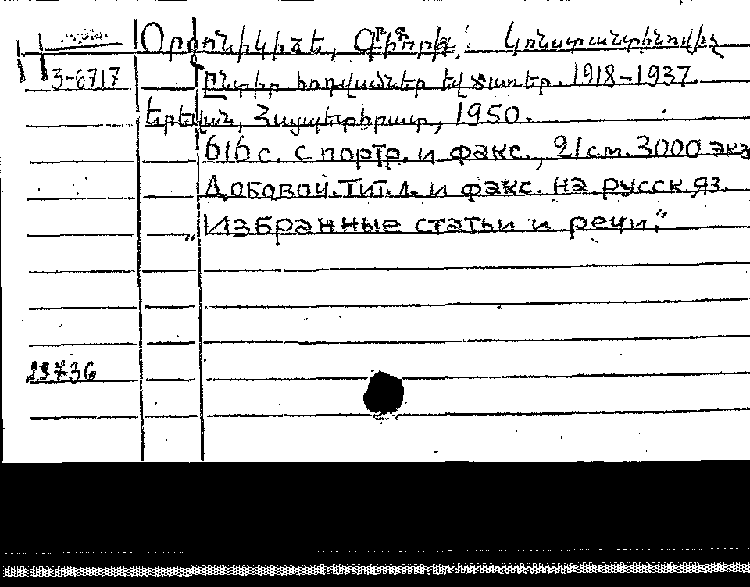 Օրջոնիկիձե, Գրիգորի Կոնստանտինովիչ
3-6717
Ընտիր հոդվածներ եվ ճառեր. 1918-1937.
Երեվան, Հայպետհրատ, 1950.
616 с. с портр. и факс., 21 см. 3000 экз
Добавоч. тит. л. и факс. на русск яз.
„Избранные статьи и речи."